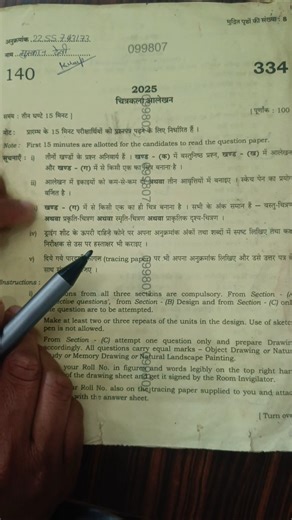 मुद्रित पृष्ठों की संख्या : 8
अनुक्रमांक
नाम
099807
140
334
2025
चित्रकला आलेखन
समय : तीन घण्टे 15 मिनट ]
[ पूर्णांक : 100
नोट : प्रारम्भ के 15 मिनट परीक्षार्थियों को प्रश्नपत्र पढ़ने के लिए निर्धारित हैं ।
Note : First 15 minutes are allotted for the candidates to read the question paper.
i) तीनों खण्डों के प्रश्न अनिवार्य हैं । खण्ड - (क) में वस्तुनिष्ठ प्रश्न, खण्ड - (ख) में आलेखन
और खण्ड - (ग) में से किसी एक का चित्र बनाना है ।
ii) आलेखन में इकाइयों को कम-से-कम दो अथवा तीन आवृत्तियों में बनाइए । स्केच पेन का प्रयोग
वर्जित है ।
खण्ड - (ग) में से किसी एक का ही चित्र बनाना है । सभी के अंक समान हैं — वस्तु-चित्रण
अथवा प्रकृति-चित्रण अथवा स्मृति-चित्रण अथवा प्राकृतिक दृश्य-चित्रण ।
iv) ड्राइंग शीट के ऊपरी दाहिने कोने पर अपना अनुक्रमांक अंकों तथा शब्दों में स्पष्ट लिखिए तथा कक्ष
निरीक्षक से उस पर हस्ताक्षर भी कराइए ।
v) दिये गये (tracing paper) पर भी अपना अनुक्रमांक लिखिए और उसे उत्तर
Instructions :
from all three sections are compulsory. From Section -
questions', from Section - (B) Design and from Section - (C)
question are to be attempted.
Make at least two or three repeats of the units in the design. Use of sketch
pen is not allowed.
From Section - (C) attempt one question only and prepare Drawing
accordingly. All questions carry equal marks - Object Drawing or Nature
Study or Memory Drawing or Natural Landscape Painting.
your Roll No. in figures and words legibly on the top right hand
of the drawing sheet and get it signed by the Room Invigilator.
your Roll No. also on the tracing paper supplied to you and attach
with the answer sheet.
[ Turn over
099807
099807
099807